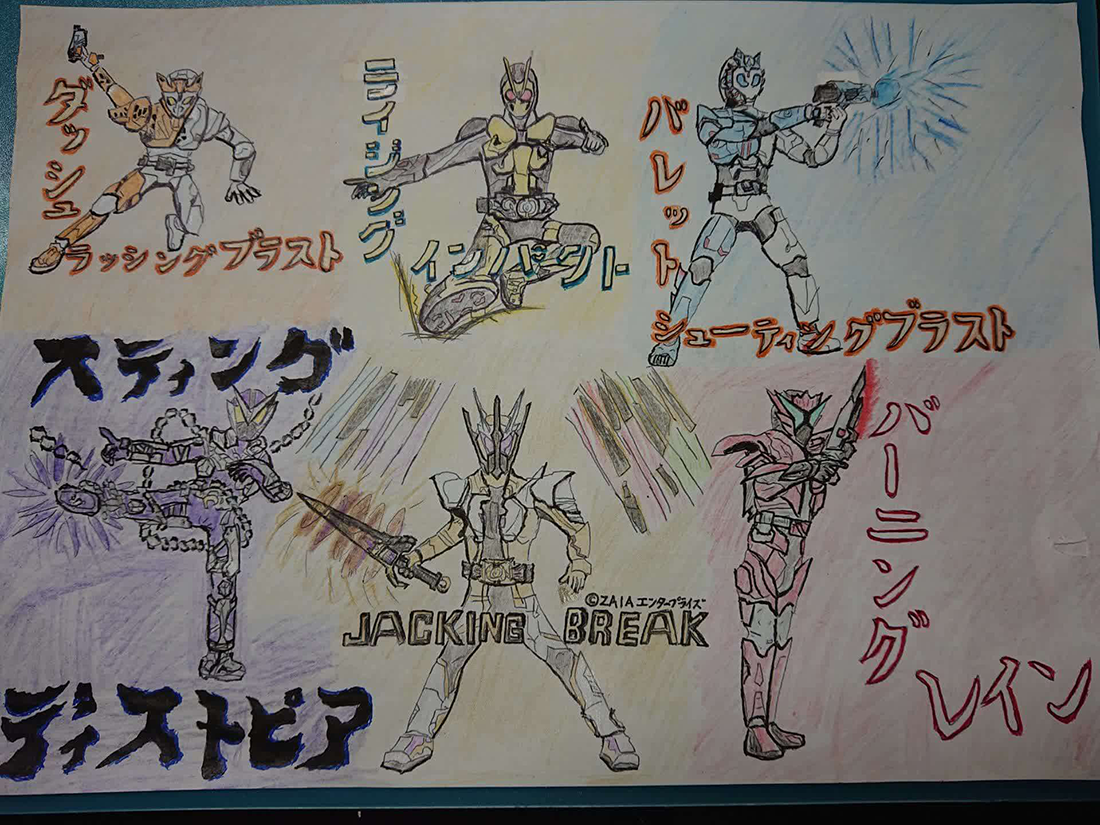 ダッシュ
ラッシングブラスト
ライジング
インパクト
バレット
シューティングブラスト
スティング
ディストピア
©ZAIAエンタープライズ
JACKING BREAK
バーニング
レイン